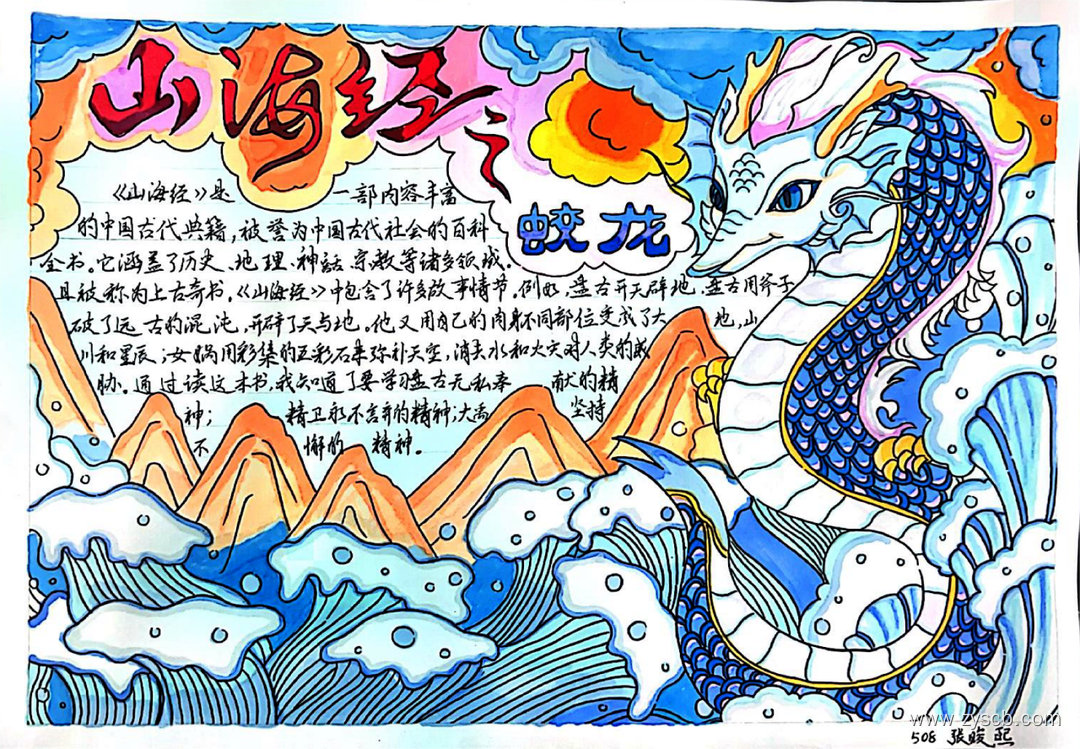 山海经之
蛟龙
《山海经》是一部内容丰富
的中国古代典籍,被誉为中国古代社会的百科
全书。它涵盖了历史、地理、神話、宗教等诸多领域。
且被称为上古奇书。《山海经》中包含了许多故事情节。例如,盘古开天辟地,盘古用斧子
破了远古的混沌,开辟了天与地。他又用自己的肉身不同部位变成了大地,山
川和星辰;女娲用彩集的五彩石来弥补天空,消去水和火灾对人类的威
胁。通过读这本书,我知道了要学习盘古无私奉献的精
神;精卫永不言弃的精神;大禹坚持
不懈的精神。
www.zyscb.com
508 张峻熙